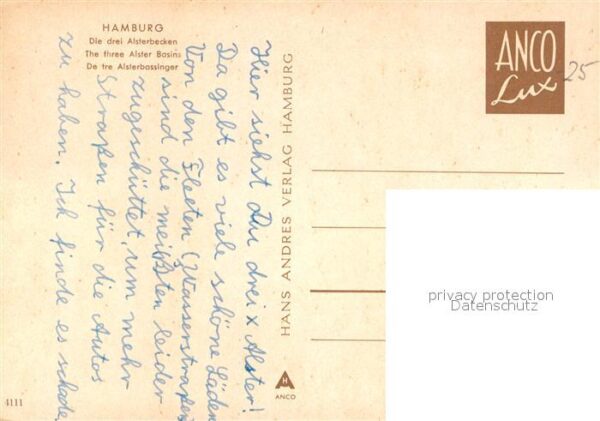 HAMBURG
Die drei Alsterbecken
The three Alster Basins
De tre Alsterbassinger
Hier siehst Du drei x Alster!
Da gibt es viele schöne Läden
Von den Fleeten (Wasserstraßen
sind die meißten leider
zugeschüttet, um mehr
Straßen für die Autos
zu haben. Ich finde es schade.
HANS ANDRES VERLAG HAMBURG
H
ANCO
ANCO
Lux
25
privacy protection
Datenschutz
4111